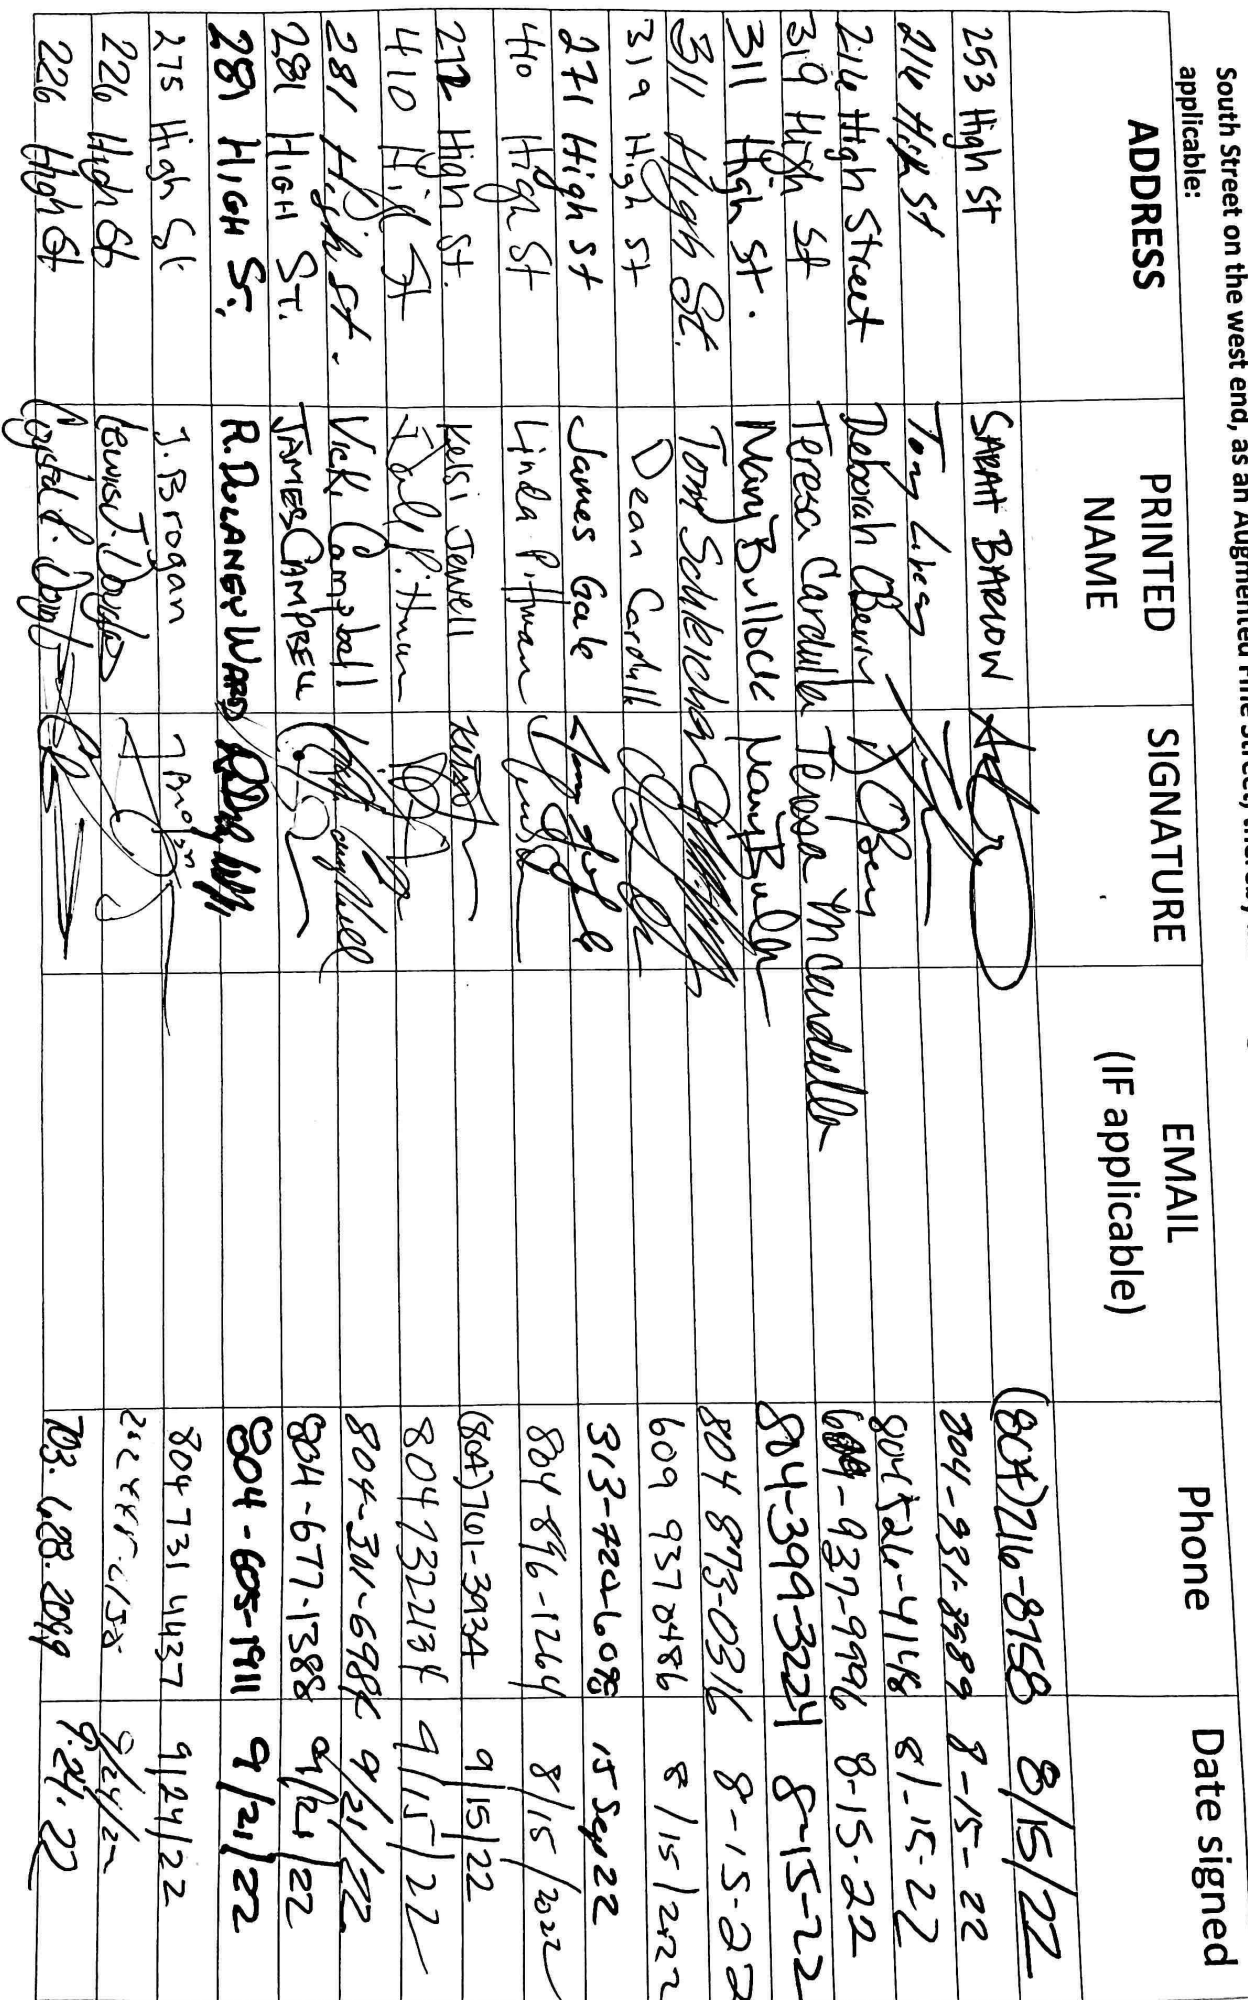 South Street on the west end, as an Augmented
applicable:
ADDRESS PRINTED NAME SIGNATURE EMAIL (IF applicable) Phone Date signed
253 High St SARAH BARLOW (804)216-8758 8/15/22
216 High St Tony 8-15-22
216 High Street Deborah OBerry 804 526-4148 8-15-22
319 High St Teresa Cardulla Teresa M Cardulla -937-9996 8-15-22
311 High St. Mary Bullock Mary Bullock 804-399-3224 8-15-22
311 High St. Tom 804 873-0316 8-15-22
319 High St Dean Cardulla 609 937 8486 8/15/2022
271 High St James Gale 15 Sep 22
410 High St Linda Pittman 804-896-1264 8/15/2022
272 High St. Kelsi Jewell (804)761-3934 9/15/22
410 High St Pittman 9/15/22
281 High St. Vicki Campbell 9/21/22
281 HIGH ST. JAMES CAMPBELL 804-677-1388 9/21/22
281 HIGH ST. R. DULANEY WARD 804-605-1911 9/21/22
275 High St J. Brogan J Brogan 804 731 4437 9/24/22
226 High St Lewis J. 9/24/22
226 High St Crystal 9.24.22